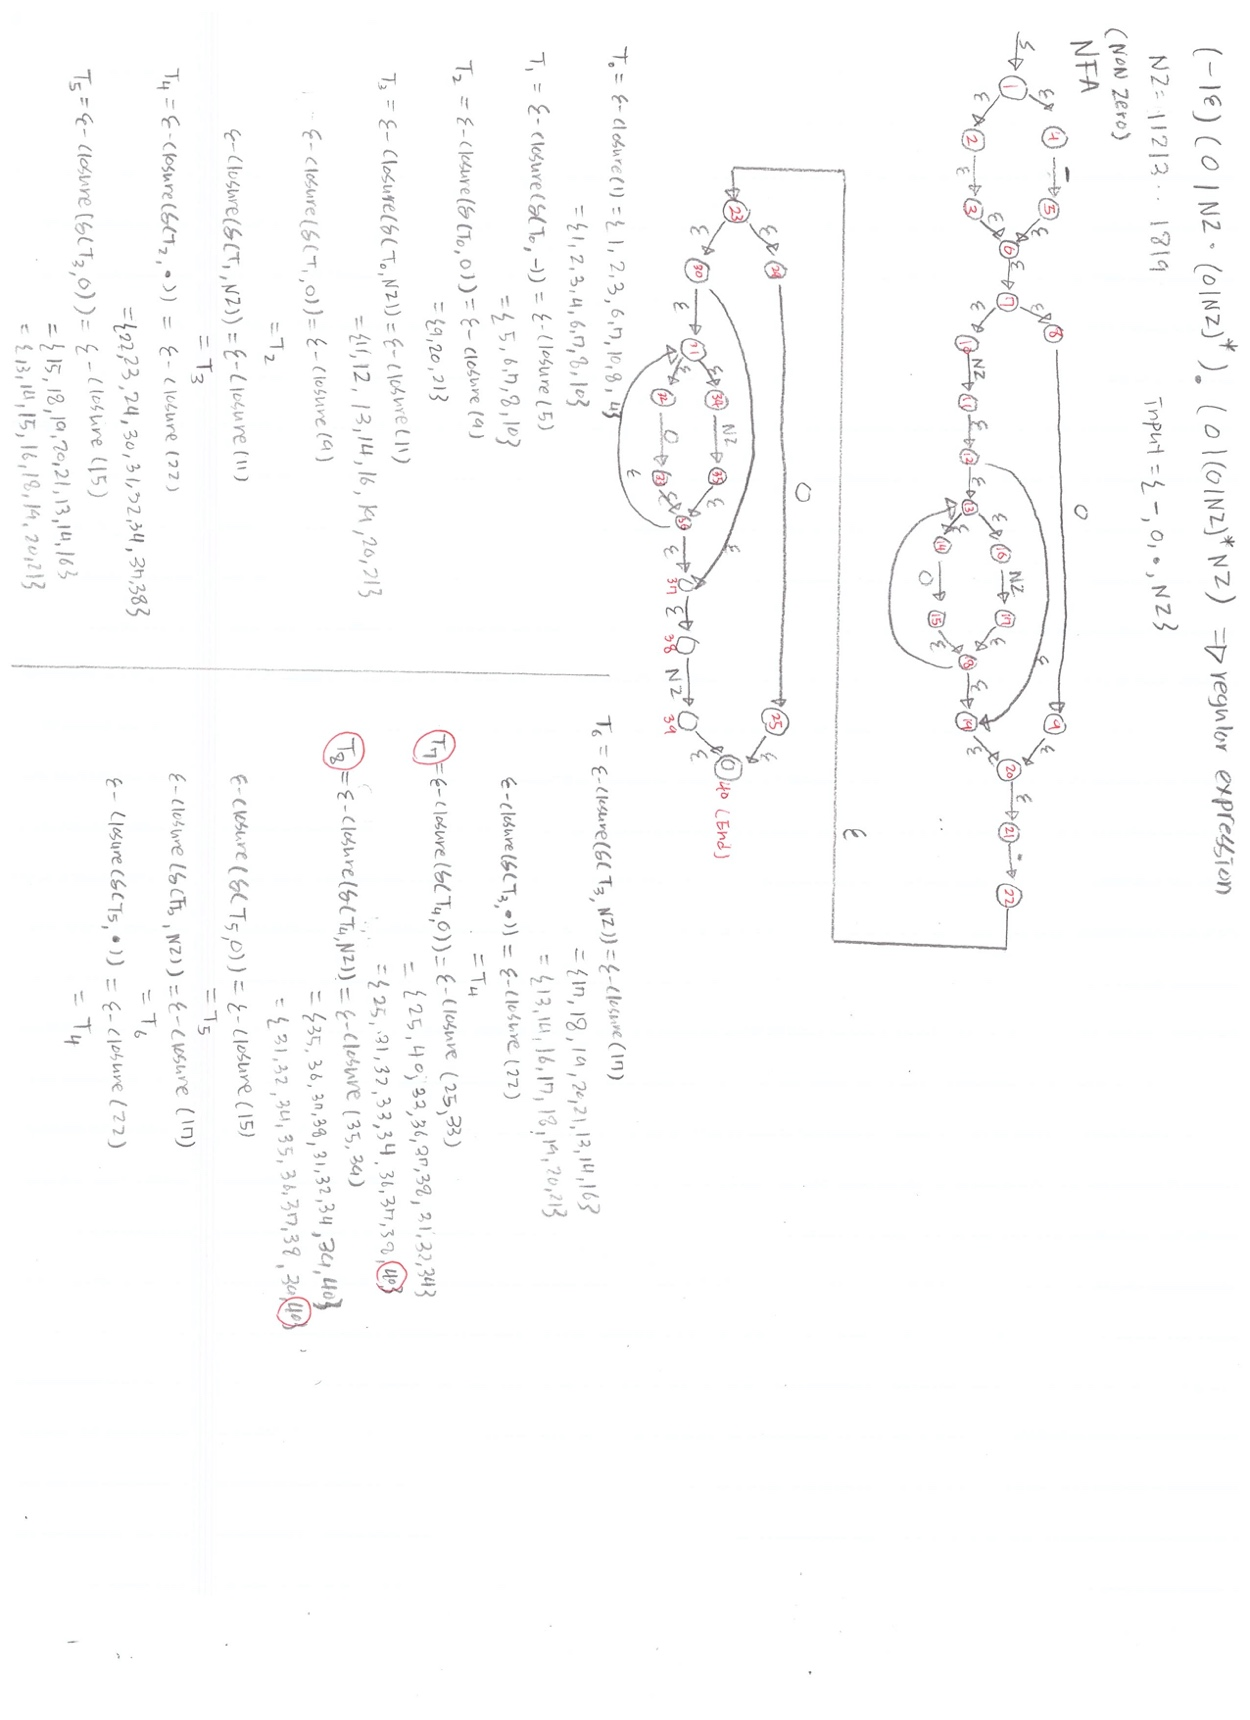 (-|ε) ( 0 | NZ · (0|NZ)* ) . ( 0 | (0|NZ)* NZ ) ⇒ regular expression
NZ = 1|2|3 .. |8|9
Input = {-, 0, •, NZ}
(NON ZERO)
NFA
ε 1 ε 4 - 5 ε
ε 2 ε 3 ε 6 ε 7
ε 8 0 9 ε
ε 10 NZ 11 ε 12 ε 13
ε 16 NZ 17 ε
ε 14 0 15 ε 18 ε 19 ε
ε
20 ε 21 . 22
ε
23 ε 24 0 25 ε
ε 30 ε 31
ε 34 NZ 35 ε
ε 32 0 33 ε 36 ε 37 ε 38 NZ 39 ε
ε
ε
40 (End)
T₀ = ε-closure(1) = {1, 2, 3, 6, 7, 10, 8, 4}
= {1, 2, 3, 4, 6, 7, 8, 10}
T₁ = ε-closure(δ(T₀, -)) = ε-closure(5)
= {5, 6, 7, 8, 10}
T₂ = ε-closure(δ(T₀, 0)) = ε-closure(9)
= {9, 20, 21}
T₃ = ε-closure(δ(T₀, NZ)) = ε-closure(11)
= {11, 12, 13, 14, 16, 19, 20, 21}
ε-closure(δ(T₁, 0)) = ε-closure(9)
= T₂
ε-closure(δ(T₁, NZ)) = ε-closure(11)
= T₃
T₄ = ε-closure(δ(T₂, •)) = ε-closure(22)
= {22, 23, 24, 30, 31, 32, 34, 37, 38}
T₅ = ε-closure(δ(T₃, 0)) = ε-closure(15)
= {15, 18, 19, 20, 21, 13, 14, 16}
= {13, 14, 15, 16, 18, 19, 20, 21}
T₆ = ε-closure(δ(T₃, NZ)) = ε-closure(17)
= {17, 18, 19, 20, 21, 13, 14, 16}
= {13, 14, 16, 17, 18, 19, 20, 21}
ε-closure(δ(T₃, •)) = ε-closure(22)
= T₄
T₇ = ε-closure(δ(T₄, 0)) = ε-closure(25, 33)
= {25, 40, 33, 36, 37, 38, 31, 32, 34}
= {25, 31, 32, 33, 34, 36, 37, 38, 40}
T₈ = ε-closure(δ(T₄, NZ)) = ε-closure(35, 39)
= {35, 36, 37, 38, 31, 32, 34, 39, 40}
= {31, 32, 34, 35, 36, 37, 38, 39, 40}
ε-closure(δ(T₅, 0)) = ε-closure(15)
= T₅
ε-closure(δ(T₅, NZ)) = ε-closure(17)
= T₆
ε-closure(δ(T₅, •)) = ε-closure(22)
= T₄